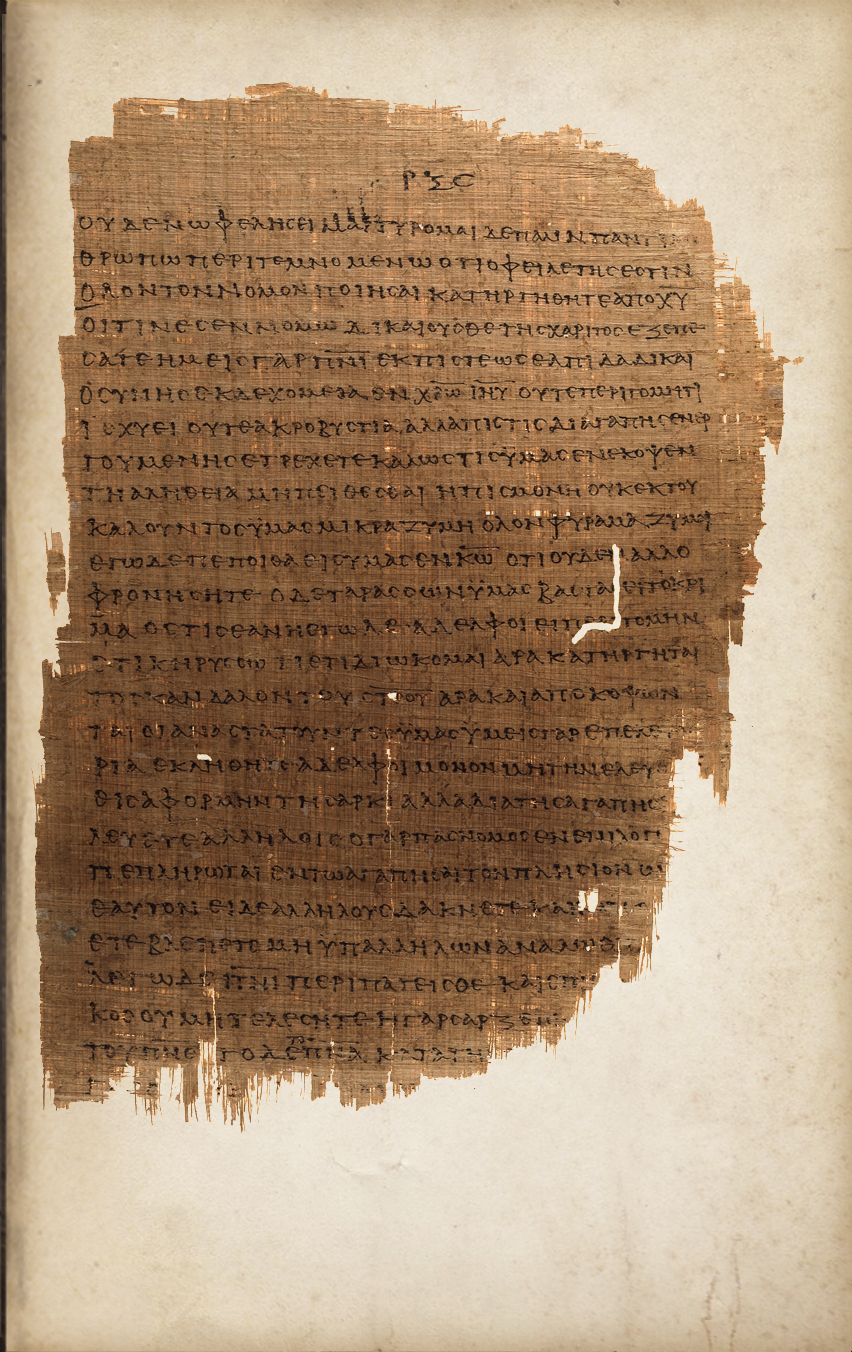 ΡΞΕ
ΟΥΔΕΝΩΦΕΛΗϹΕΙΜΑΡΤΥΡΟΜΑΙΔΕΠΑΛΙΝΠΑΝΤΙ
ΘΡΩΠΩΠΕΡΙΤΕΜΝΟΜΕΝΩΟΤΙΟΦΕΙΛΕΤΗϹΕϹΤΙΝ
ΟΛΟΝΤΟΝΝΟΜΟΝΠΟΙΗϹΑΙΚΑΤΗΡΓΗΘΗΤΕΑΠΟΧΥ
ΟΙΤΙΝΕϹΕΝΝΟΜΩΔΙΚΑΙΟΥϹΘΕΤΗϹΧΑΡΙΤΟϹΕΞΕΠΕ
ϹΑΤΕΗΜΕΙϹΓΑΡΠΝΙΕΚΠΙϹΤΕΩϹΕΛΠΙΔΑΔΙΚΑΙ
ΟϹΥΝΗϹΕΚΔΕΧΟΜΕΘΑΕΝΧΡΩΙΗΥΟΥΤΕΠΕΡΙΤΟΜΗΤΙ
ΙϹΧΥΕΙΟΥΤΕΑΚΡΟΒΥϹΤΙΑΑΛΛΑΠΙϹΤΙϹΔΙΑΓΑΠΗϹΕΝΕΡ
ΓΟΥΜΕΝΗϹΕΤΡΕΧΕΤΕΚΑΛΩϹΤΙϹΫΜΑϹΕΝΕΚΟΨΕΝ
ΤΗΑΛΗΘΕΙΑΜΗΠΕΙΘΕϹΘΑΙΗΠΙϹΜΟΝΗΟΥΚΕΚΤΟΥ
ΚΑΛΟΥΝΤΟϹΫΜΑϹΜΙΚΡΑΖΥΜΗΟΛΟΝΦΥΡΑΜΑΖΥΜΟΙ
ΕΓΩΔΕΠΕΠΟΙΘΑΕΙϹΥΜΑϹΕΝΚΩΟΤΙΟΥΔΕΝΑΛΛΟ
ΦΡΟΝΗϹΗΤΕΟΔΕΤΑΡΑϹϹΩΝΫΜΑϹΒΑϹΤΑϹΕΙΤΟΚΡΙ
ΜΑΟϹΤΙϹΕΑΝΗΕΓΩΔΕΑΔΕΛΦΟΙΕΙΠΕΡΙΤΟΜΗΝ
ΕΤΙΚΗΡΥϹϹΩΤΙΕΤΙΔΙΩΚΟΜΑΙΑΡΑΚΑΤΗΡΓΗΤΑΙ
ΤΟϹΚΑΝΔΑΛΟΝΤΟΥϹΤΡΟΥΑΡΑΚΑΙΑΠΟΚΟΨΩΝ
ΤΑΙΟΙΑΝΑϹΤΑΤΟΥΝΤΕϹΫΜΑϹΫΜΕΙϹΓΑΡΕΠΕΛΕ
ΡΙΑΕΚΛΗΘΗΤΕΑΔΕΛΦΟΙΜΟΝΟΝΜΗΤΗΝΕΛΕΥ
ΘΙϹΑΦΟΡΜΗΝΤΗϹΑΡΚΙΑΛΛΑΔΙΑΤΗϹΑΓΑΠΗϹ
ΛΕΥΕΤΕΑΛΛΗΛΟΙϹΟΓΑΡΠΑϹΝΟΜΟϹΕΝΕΝΙΛΟΓ
ΠΕΠΛΗΡΩΤΑΙΕΝΤΩΑΓΑΠΗϹΕΙϹΤΟΝΠΛΗϹΙΟΝ
ΕΑΥΤΟΝΕΙΔΕΑΛΛΗΛΟΥϹΔΑΚΝΕΤΕΚΑΙ
ΕΤΕΒΛΕΠΕΤΕΜΗΥΠΑΛΛΗΛΩΝΑΝΑΛΩ
ΛΕΓΩΔΕΠΝΙΠΕΡΙΠΑΤΕΙϹΘΕΚΑΙΕΠΙ
ΚΑϹΟΥΜΗΤΕΛΕϹΗΤΕΗΓΑΡϹΑΡΞΕΠΙ
ΤΟΥΠΝϹΤΟΔΕΠΝΑΚΑΤΑΤΗ